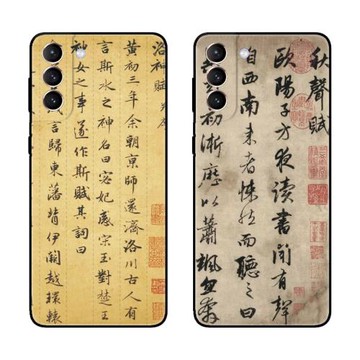 洛神賦
黃初三年余朝京師還濟洛川古人有
言斯水之神名曰宓妃感宋玉對楚王
神女之事遂作斯賦其詞曰
言歸東藩背伊闕越轘轅
秋聲賦
歐陽子方夜讀書聞有聲
自西南來者悚然而聽之曰
初淅瀝以蕭颯忽奔